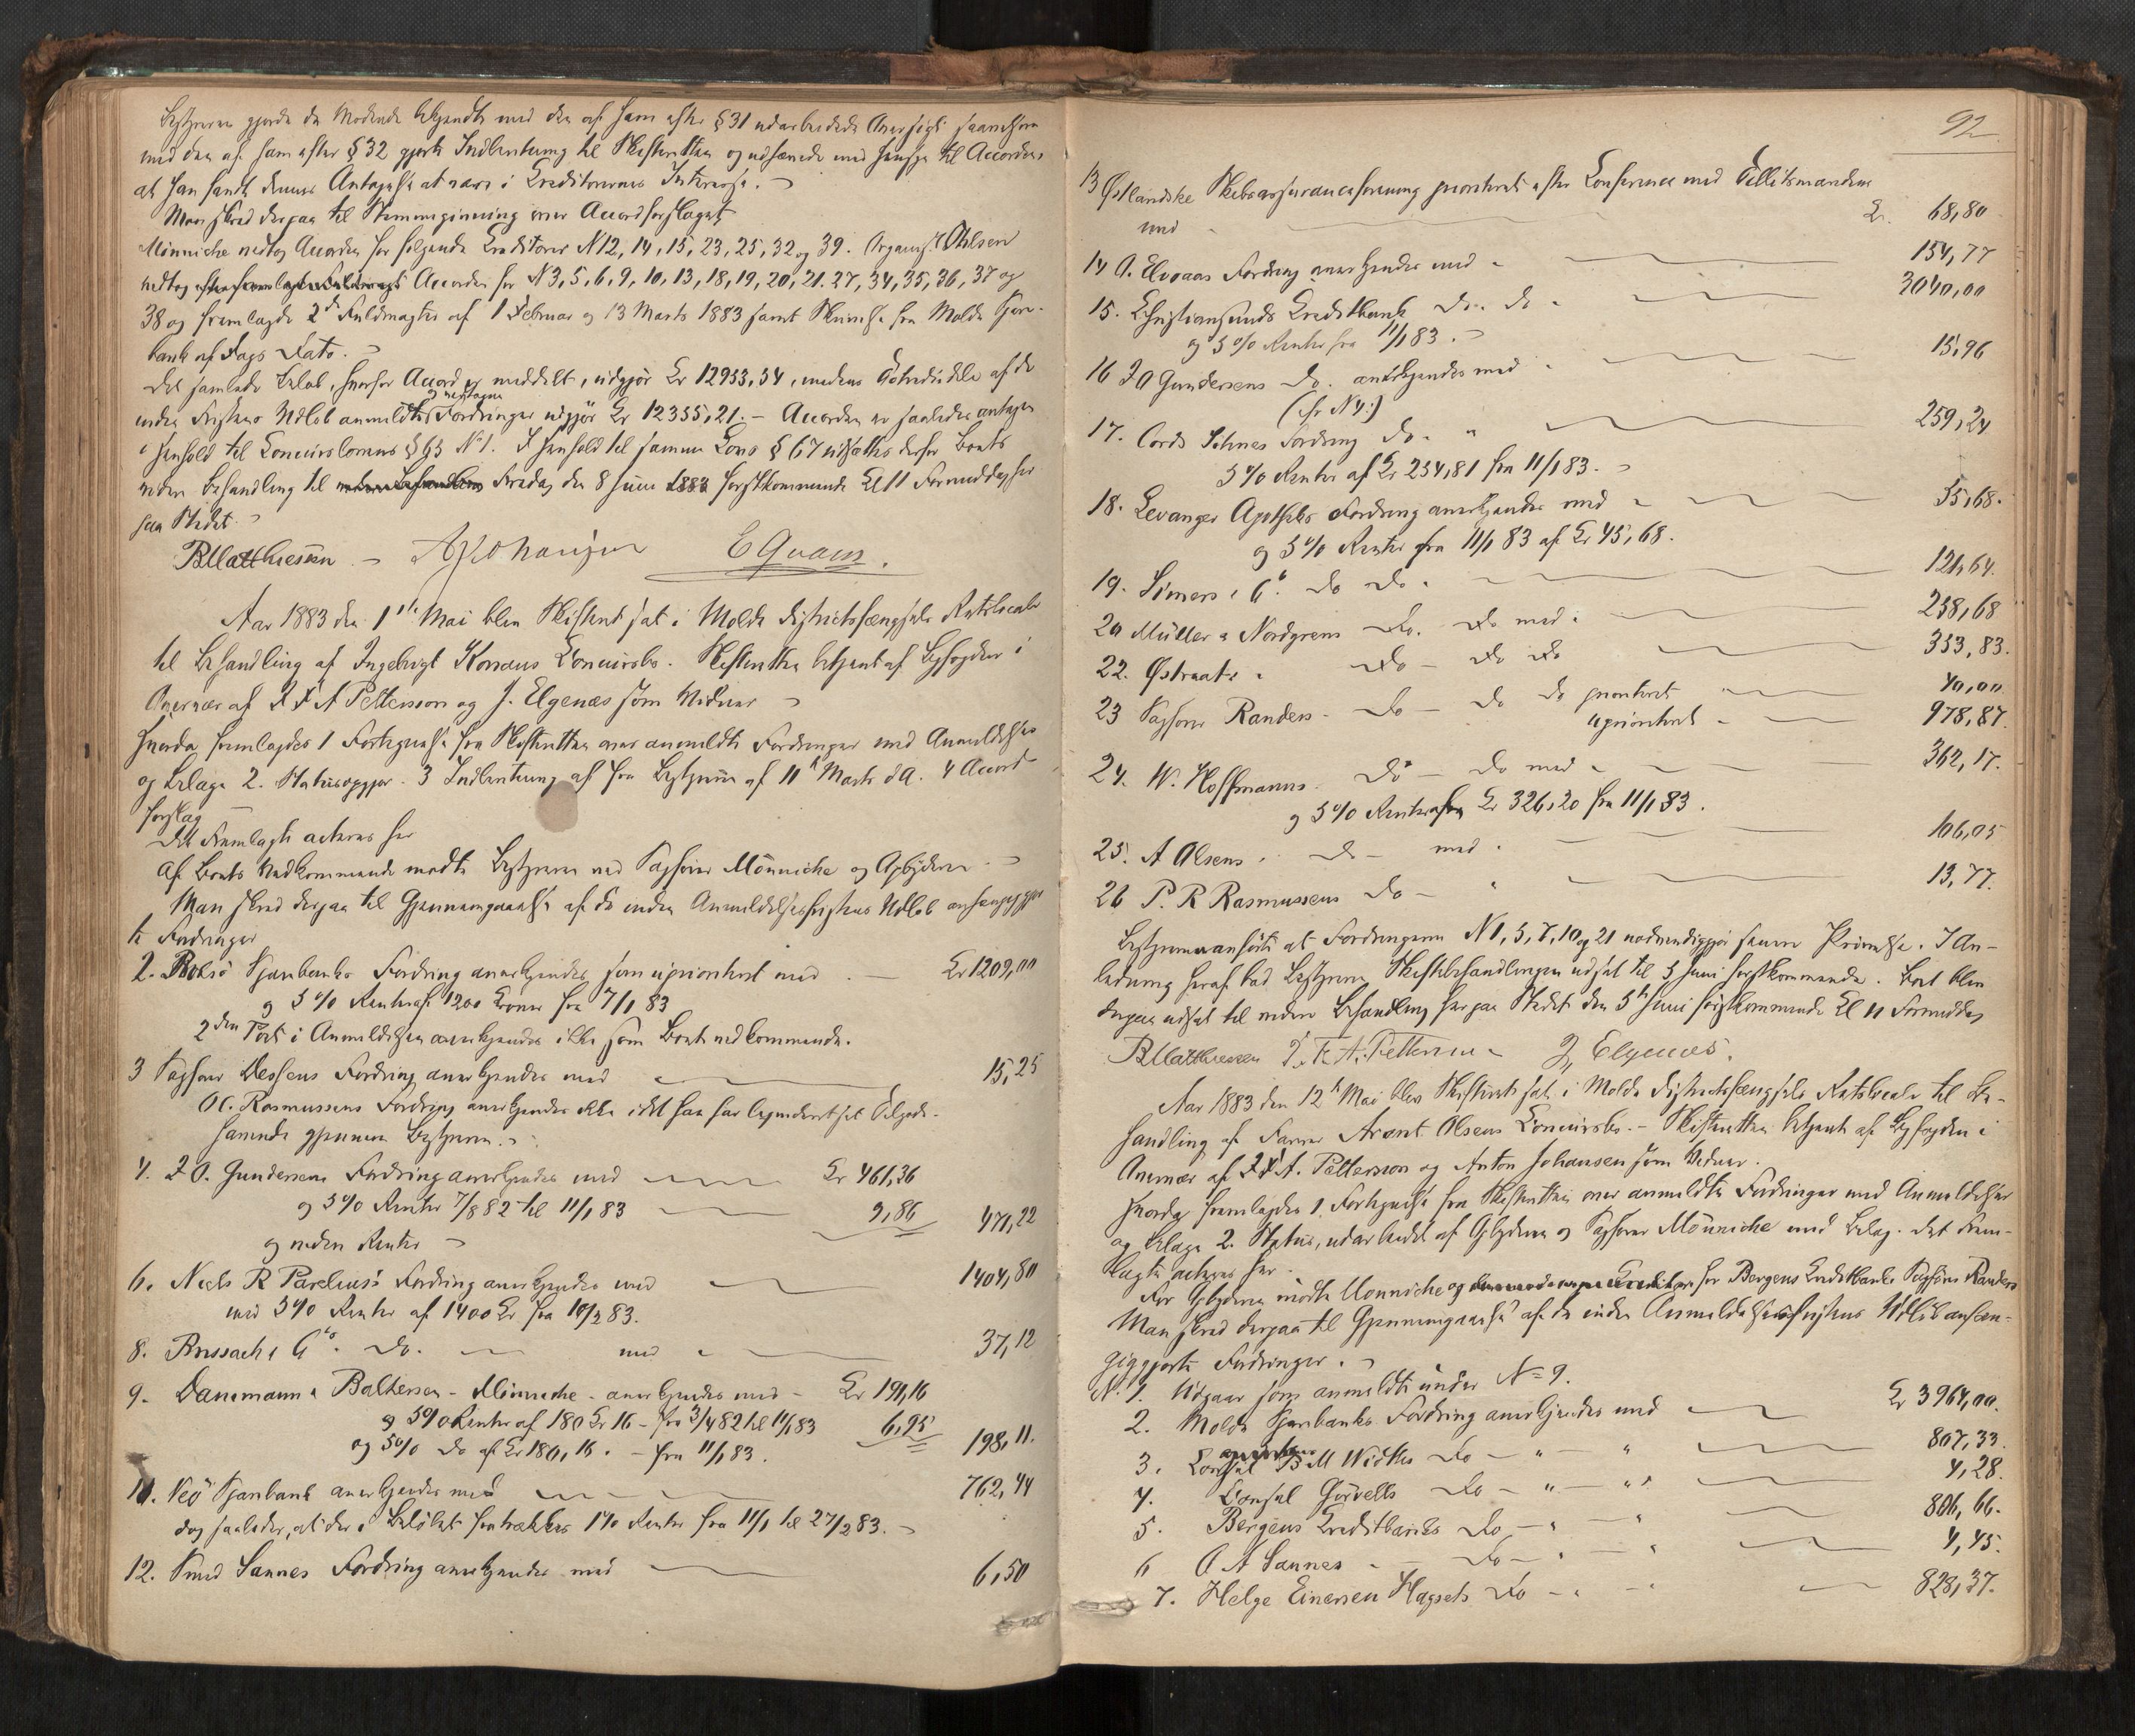 Bestyreren gjorde de Mødende bekjendt med den af ham efter § 31 udarbeidede Oversigt saavelsom
med den af ham efter § 32 gjorte Indberetning til Skifteretten og udtalede med Hensyn til Accorden,
at han fandt dennes Antagelse at være i Creditorernes Interesse.
Man skred derpaa til Stemmegivning over Accordforslaget
Mönniche vedtog Accorden for følgende Creditorer N 12, 14, 15, 23, 25, 32 og 39. Organist Ohlsen
vedtog Accorden for N 3, 5, 6, 9, 10, 13, 18, 19, 20, 21. 27, 34, 35, 36, 37 og
38 og fremlagde 2de Fuldmagter af 1 Februar og 13 Marts 1883 samt Skrivelse fra Molde Spare-
bank af Dags Dato.
Det samlede Beløb, hvorfor Accord er meddelt, udgjør Kr 12953,54, medens af de
og vedtagne
inden Fristens Udløb anmeldte Fordringer udgjør Kr 12355,21. - Accorden er saaledes antagen
i Henhold til Concurslovens § 63 N 1. I Henhold til samme Lovs § 67 udsattes derfor Boets
videre Behandling til Fredag den 8 Juni 1883 førstkommende Kl 11 Formiddag her
paa Stedet
B Matthiessen - A Johansen E Qvam.
Aar 1883 den 1ste Mai blev Skifteret sat i Molde Districtsfængsels Retslocale
til Behandling af Ingebrigt Konsaus Concursbo. Skifteretten betjent af Byfogden i
Overvær af I F A Pettersson og J. Elgenæs som Vidner
Hvorda fremlagdes 1 Fortegnelse fra Skifteretten over anmeldte Fordringer med Anmeldelser
og Bilage 2. Statusopgjør. 3 Indberetning af fra Bestyreren af 11 Marts d A. 4 Accord-
forslag
Det Fremlagte acteres her
Af Boets Vedkommende mødte Bestyreren ved Sagfører Mönniche og Opbyderen
Man skred derpaa til Gjennemgaaelse af de inden Anmeldelsesfristens Udløb anhængiggjor
te Fordringer
2. Bolsø Sparebanks Fordring anerkjendes som uprioritert med Kr 1209,00
og 5 % Renter af 1200 Kroner fra 7/1 83
2den Post i Anmeldelsen anerkjendes ikke som Boet vedkommende.
3 Sagfører Dessens Fordring anerkjendes med 15,25
Ol. Rasmussens Fordring anerkjendes ikke idet han har Tilgode-
havende gjennem Bestyreren.
4. I O. Gundersens Fordring anerkjendes med Kr 461,36
og 5 % Renter 7/8 82 til 11/1 83 9,86 471,22
og videre Renter
6. Niels R Parelius's Fordring anerkjendes med 1404,80
med 5 % Renter af 1400 Kr. fra 10/2 83.
8. Brussach & Co. Do. med 37,12
9. Danemann & Baltersen - Mönniche - anerkjendes med - Kr 191,16
og 5 % Renter af 180 Kr 16 - fra 3/4 82 til 11/1 83 6,95
og 5 % Do af Kr 180,16. - fra 11/1 83. 198,11.
11. Veö Sparebank anerkjendes med 762,44
dog saaledes, at der i Beløbet fratrækkes 1 % Renter fra 11/1 til 27/2 83.
12. Knud Sannes Fordring anerkjendes med 6,50
92
13 Østlandske Skibsassuranceforening prioritert efter Conference med Tillidsmanden
med Kr. 68,80
14 A. Elvsaas Fordring anerkjendes med 154,77
15. Christiansunds Creditbank Do. do 3040,00
og 5 % Renter fra 11/1 83.
16 I O Gundersens Do. anerkjendes med 15,96
(cfr N 4:)
17. Cords Söhnes Fordring Do. " 259,24
5 % Renter af Kr 254,81 fra 11/1 83.
18. Levanger Apotheks Fordring anerkjendes med 55,68.
og 5 % Renter fra 11/1 83 af Kr 45,68.
19. Simers & Co. do do. 121,64.
20 Müller & Nordgrens Do. Do med. 238,68
22. Østraat Do - Do Do 353,83.
23 Sagfører Randers - Do - Do Do prioritert 40,00
uprioritert - 978,87.
24. W. Hoffmanns Do - Do med 362,17.
og 5 % Renter fra Kr 326,20 fra 11/1 83.
25. A Olsens. Do - med. 106,05
26 P. R Rasmussens Do - " 13,77.
Bestyreren anførte at Fordringerne N 1, 5, 7, 10 og 21 nødvendiggjør Prøvelse. I An-
ledning heraf bad Bestyreren Skiftebehandlingen udsat til 5 Juni førstkommende. Boet blev
derpaa udsat til videre Behandling her paa Stedet den 5te Juni førstkommende Kl 11 Formiddag
B Matthiessen I. F. A. Pettersson - J, Elgenæs.
Aar 1883 den 12te Mai blev Skifteret sat i Molde Districtsfængsels Retslocale til Be-
handling af Farver Aront Olsens Concursbo. - Skifteretten betjent af Byfogden i
Overvær af I F A. Pettersson og Anton Johansen som Vidner.
Hvorda fremlagdes 1. Fortegnelse fra Skifteretten over anmeldte Fordringer med Anmeldelser
og Bilage 2. Status, udarbeidet af Opbyderen og Sagfører Mönniche med Bilag. Det Frem-
lagte acteres her.
For Opbyderen mødte Mönniche og for Bergens Creditbank Sagfører Randers
Man skred derpaa til Gjennemgaaelse af de inden Anmeldelsesfristens Udløb anhæn-
giggjorte Fordringer.
N. 1. Udgaar som anmeldt under N= 9.
2. Molde Sparebanks Fordring anerkjendes med Kr 3964,00.
3. Consul B M Withs Do - " - " 807,33.
4. Consul Gørvells Do - " - " 4,28.
5. Bergens Creditbanks Do - " - " 806,66.
6 O A Sannes - Do - " - " 4,45.
7. Helge Einersen Hagsets Do - " - " 828,37.